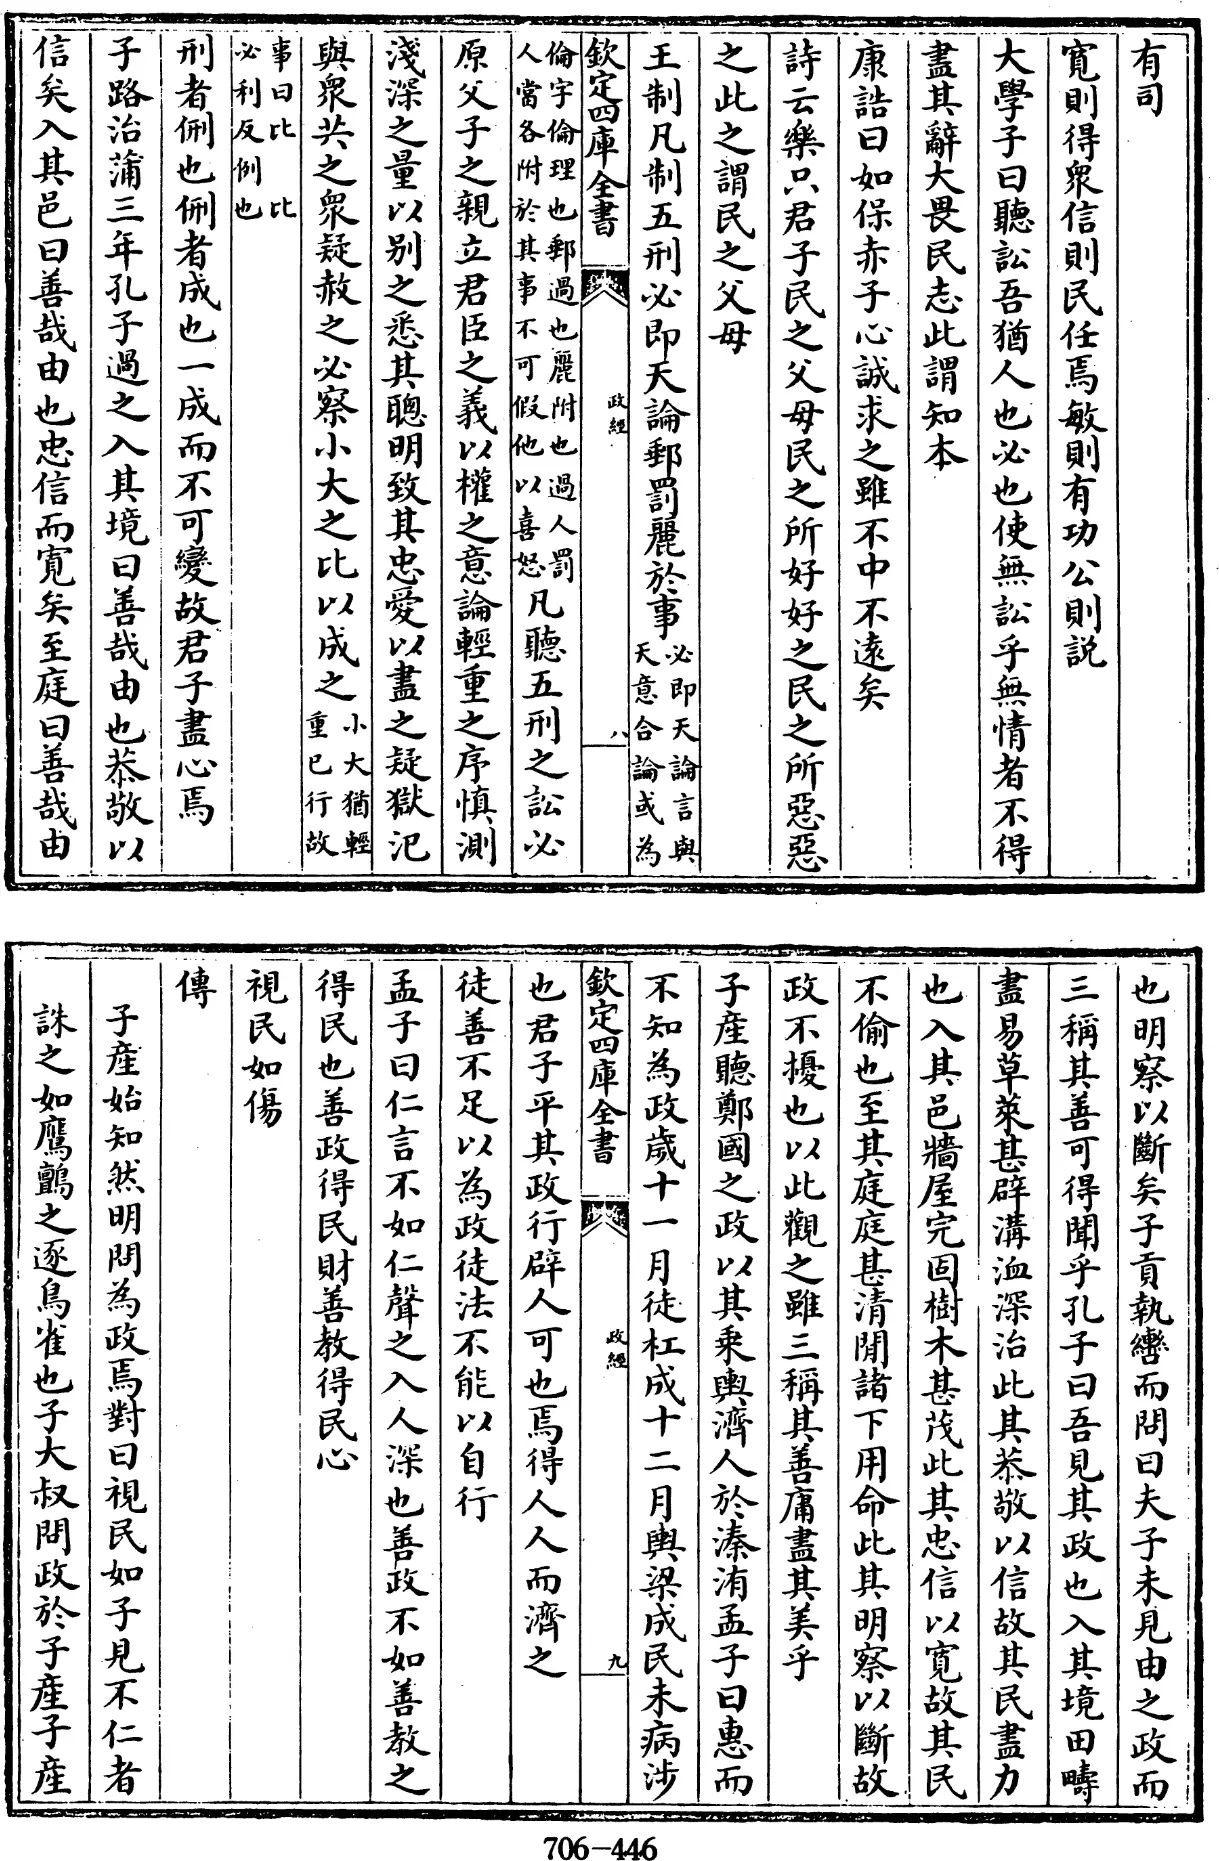 有司
寛則得衆信則民任焉敏則有功公則説
大學子曰聽訟吾猶人也必也使無訟乎無情者不得
盡其辭大畏民志此謂知本
康誥曰如保赤子心誠求之雖不中不遠矣
詩云樂只君子民之父母民之所好好之民之所惡惡
之此之謂民之父母
王制凡制五刑必即天論郵罰麗於事必即天論言與
天意合論或為
欽定四庫全書
政經
八
倫字倫理也郵過也麗附也過人罰
人當各附於其事不可假他以喜怒凡聽五刑之訟必
原父子之親立君臣之義以權之意論輕重之序慎測
淺深之量以别之悉其聰明致其忠愛以盡之疑獄汜
與衆共之衆疑赦之必察小大之比以成之小大猶輕
重已行故
事曰比 比
必利反例也
刑者侀也侀者成也一成而不可變故君子盡心焉
子路治蒲三年孔子過之入其境曰善哉由也恭敬以
信矣入其邑曰善哉由也忠信而寛矣至庭曰善哉由
也明察以斷矣子貢執轡而問曰夫子未見由之政而
三稱其善可得聞乎孔子曰吾見其政也入其境田疇
盡易草萊甚辟溝洫深治此其恭敬以信故其民盡力
也入其邑牆屋完固樹木甚茂此其忠信以寛故其民
不偷也至其庭庭甚清閒諸下用命此其明察以斷故
政不擾也以此觀之雖三稱其善庸盡其美乎
子產聽鄭國之政以其乘輿濟人於溱洧孟子曰惠而
不知為政歲十一月徒杠成十二月輿梁成民未病涉
欽定四庫全書
政經
九
也君子平其政行辟人可也焉得人人而濟之
徒善不足以為政徒法不能以自行
孟子曰仁言不如仁聲之入人深也善政不如善教之
得民也善政得民財善教得民心
視民如傷
傳
子產始知然明問為政焉對曰視民如子見不仁者
誅之如鷹鸇之逐鳥雀也子大叔問政於子產子產
706-446